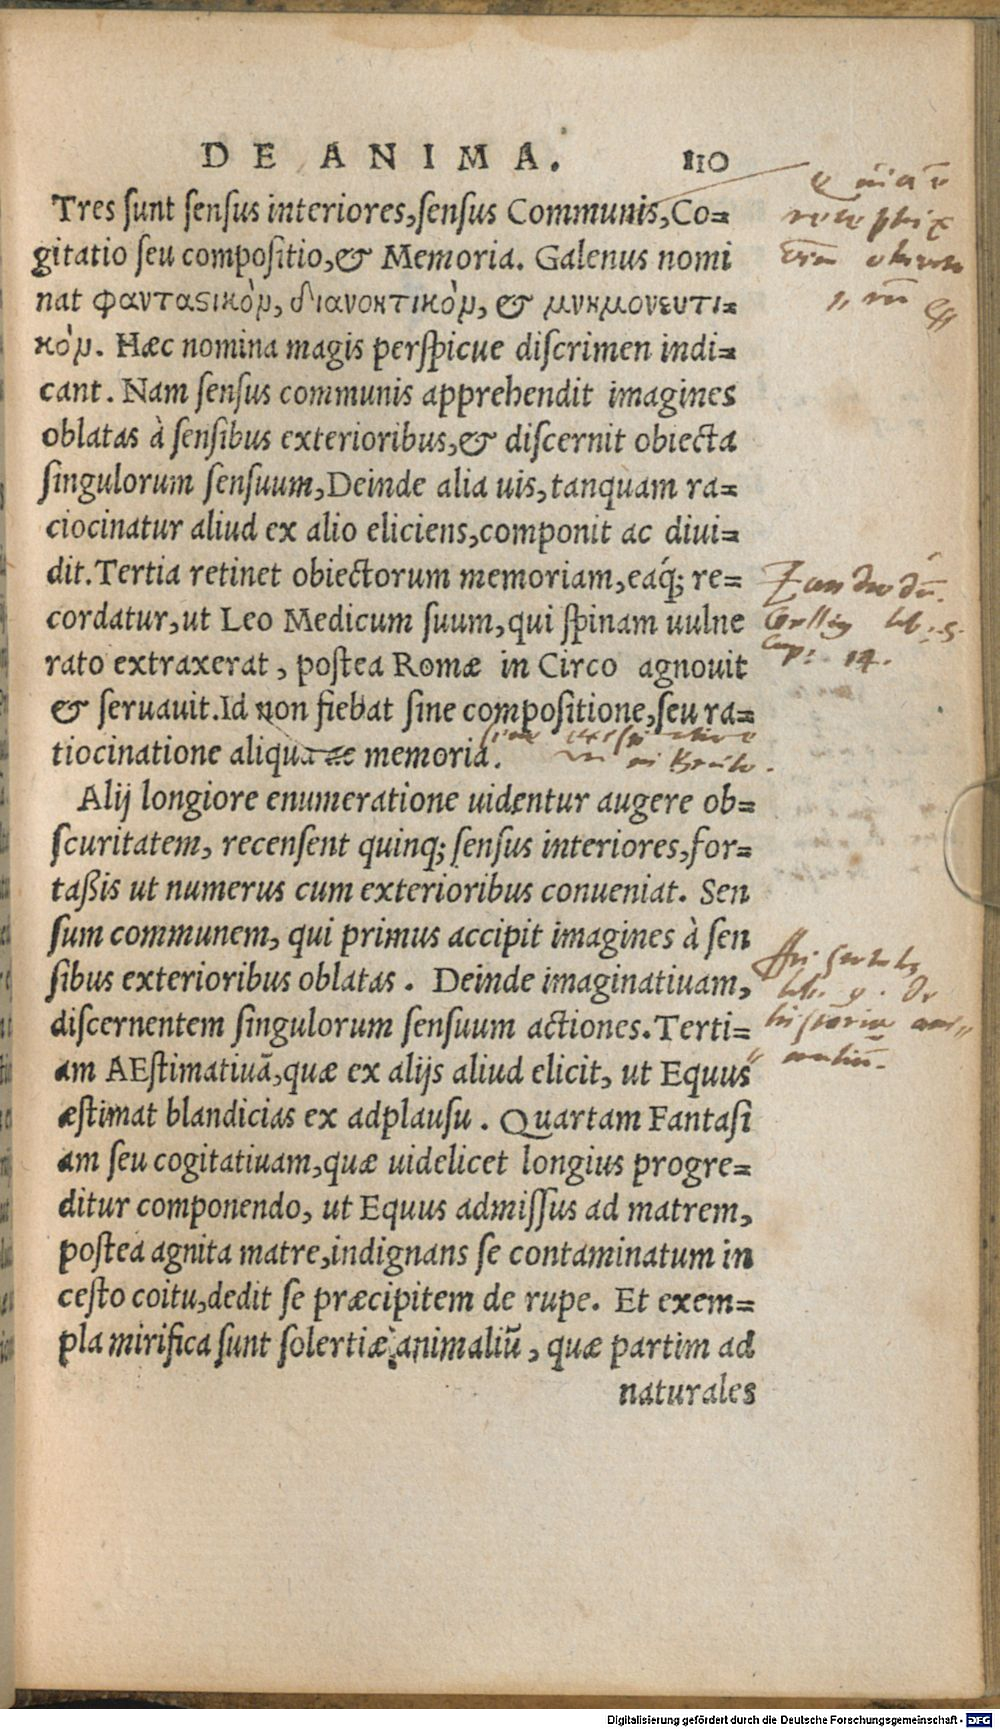 DE ANIMA. 110
Tres sunt sensus interiores,sensus Communis,Co=
gitatio seu compositio,& Memoria. Galenus nomi
nat φανταςικὸμ, διανοητικὸμ, & μνημονευτι=
κὸμ. Hæc nomina magis perspicue discrimen indi=
cant. Nam sensus communis apprehendit imagines
oblatas à sensibus exterioribus,& discernit obiecta
singulorum sensuum,Deinde alia uis,tanquam ra=
ciocinatur aliud ex alio eliciens,componit ac diui=
dit.Tertia retinet obiectorum memoriam,eaq́; re=
cordatur,ut Leo Medicum suum,qui spinam uulne
rato extraxerat, postea Romæ in Circo agnouit
& seruauit.Id non fiebat sine compositione,seu ra=
tiocinatione aliqua ac memoria.
Alij longiore enumeratione uidentur augere ob=
scuritatem, recensent quinq; sensus interiores,for=
taßis ut numerus cum exterioribus conueniat. Sen
sum communem, qui primus accipit imagines à sen
sibus exterioribus oblatas. Deinde imaginatiuam,
discernentem singulorum sensuum actiones.Terti=
am AEstimatiuā,quæ ex alijs aliud elicit, ut Equus
æstimat blandicias ex adplausu. Quartam Fantasi
am seu cogitatiuam,quæ uidelicet longius progre=
ditur componendo, ut Equus admissus ad matrem,
postea agnita matre,indignans se contaminatum in
cesto coitu,dedit se præcipitem de rupe. Et exem=
pla mirifica sunt solertiæ animaliū, quæ partim ad
naturales
lib: 5
cap: 14.
lib. 9. de
historia
Digitalisierung gefördert durch die Deutsche Forschungsgemeinschaft - DFG